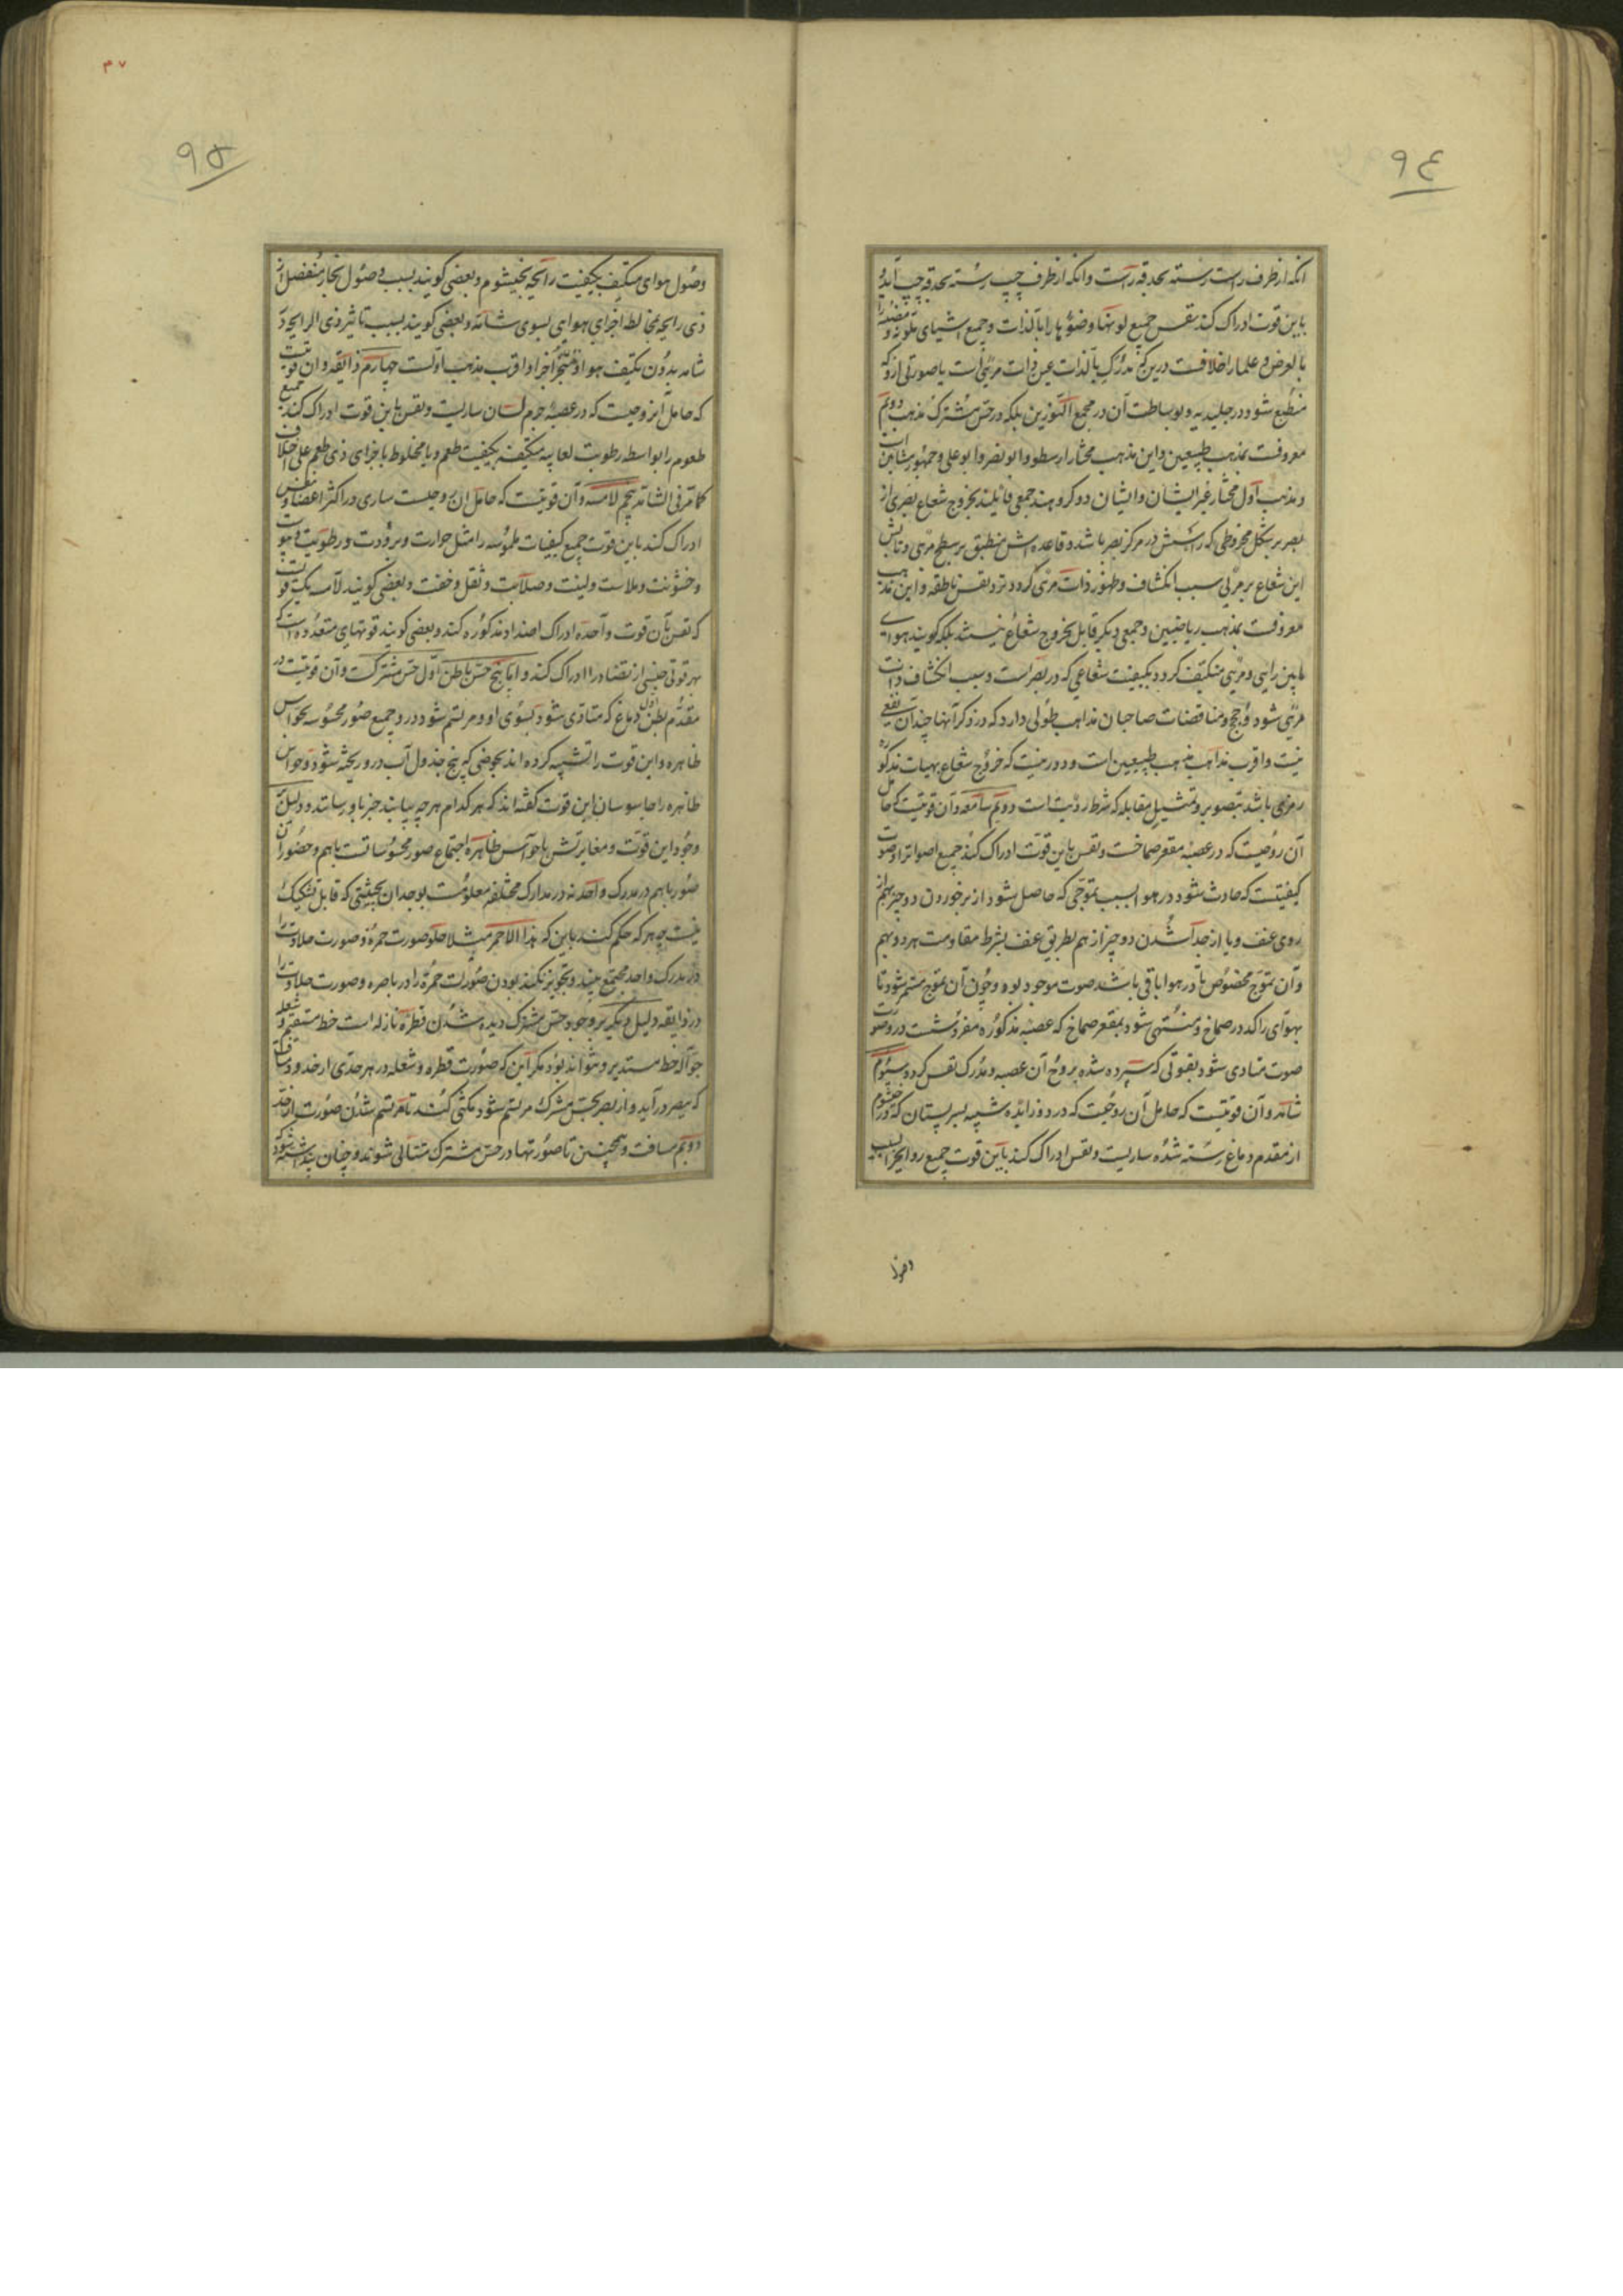 ۹٤
انکه از طرف راست رسته بحدقه راست و انکه از طرف چپ رسته بحدقه چپ آید و
باین قوت ادراک کند نفس جمیع لونها و ضوؤها را بالذات و جمیع اشیای متلونه و مضیئه را
بالعرض و علما را خلافست درین که مدرک بالذات عین ذات مرئی است یا صورتی ازو که
منطبع شود در جلیدیه و بوساطت آن در مجمع النورین بلکه در حس مشترک مذهب دویم
معروفست بمذهب طبیعین و این مذهب مختار ارسطو و ابو نصر و ابو علی و جمهور مشائین است
و مذهب اول مختار غیر ایشان و ایشان دو گروهند جمعی قائلند بخروج شعاع بصری از
بصر بر شکل مخروطی که رأسش در مرکز بصر باشد و قاعده اش منطبق بر سطح مرئی و تابش
این شعاع بر مرئی سبب انکشاف و ظهور ذات مرئی کردد نزد نفس ناطقه و این مذهب
معروفست بمذهب ریاضیین و جمعی دیکر قابل بخروج شعاع نیستند بلکه کویند هوای
مابین رایی و مرئی متکیف کردد بکیفیت شعاعی که در بصر است و سبب انکشاف ذات
مرئی شود و حجج و مناقضات صاحبان مذاهب طولی دارد که در ذکر آنها چندان نفعی
نیست و اقرب مذاهب مذهب طبیعین است و دور نیست که خروج شعاع بهیات مذکوره
رمزی باشد بتصویر و تمثیل مقابله که شرط رؤیت است دویم سامعه و آن قوتیست که حامل
آن روحیست که در عصبه مقعر صماخست و نفس باین قوت ادراک کند جمیع اصوات را و صوت
کیفیتست که حادث شود در هوا بسبب تموجی که حاصل شود از برخوردن دو چیز بهم از
روی عنف و یا از جدا شدن دو چیز از هم بطریق عنف بشرط مقاومت هر دو بهم
و آن تموج مخصوص تا در هوا باقی باشد صوت موجود بود و چون آن تموج مستمر شود تا
بهوای راکد در صماخ و منتهی شود بمقعر صماخ که عصبه مذکوره مفروشست درو صورت
صوت متادی شود بقوتی که سپرده شده بروح آن عصبه و مدرک نفس کردد سیوم
شامه و آن قوتیست که حامل آن روحیست که در دو زایده شبیه بسر پستان که در خیشوم
از مقدم دماغ رسته شده ساریست و نفس ادراک کند باین قوت جمیع روایح را بسبب
وصول
۳۷
۹۵
وصول هوای متکیف بکیفیت رایحه بخیشوم و بعضی کویند بسبب وصول بخار منفصل از
ذی رایحه مخالط اجزای هوای بسوی شامه و بعضی کویند بسبب تاثیر ذی الرایحه در
شامه بدون تکیف هوا و تبخر اجزا و اقرب مذهب اولست چهارم ذایقه و آن قوتیست
که حامل آن روحیست که در عصبه جرم لسان ساریست و نفس باین قوت ادراک کند جمیع
طعوم را بواسطه رطوبت لعابیه متکیف بکیفیت طعم و یا مخلوط باجزای ذی طعم علی اختلاف
کما مر فی الشامه پنجم لامسه و آن قوتیست که حامل آن روحیست ساری در اکثر اعضا و نفس
ادراک کند باین قوت جمیع کیفیات ملموسه را مثل حرارت و برودت و رطوبت و یبوست
و خشونت و ملاست و لینت و صلابت و ثقل و خفت و بعضی کویند لامسه یک قوتست
که نفس بآن قوت واحده ادراک اضداد مذکوره کند و بعضی کویند قوتهای متعدده است که
بهر قوتی جنسی از تضاد را ادراک کند و اما پنج حس باطن اول حس مشترکست و آن قوتیست در
مقدم بطن اول دماغ که متادی شود بسوی او و مرتسم شود درو جمیع صور محسوسه بحواس
ظاهره و این قوت را تشبیه کرده اند بحوضی که پنج جدول آب درو ریخته شود و حواس
ظاهره را جاسوسان این قوت کفته اند که هر کدام هر چه بیابند خبر باو رسانند و دلیل
وجود این قوت و مغایرتش با حواس ظاهره اجتماع صور محسوساتست باهم و حضور آن
صور باهم در مدرک واحد نه در مدارک مختلفه معلومست بوجدان بحیثیتی که قابل تشکیک
نیست چه هر که حکم کند باین که هذا الاحمر مثلا حلو صورت حمرة و صورت حلاوت را
در مدرک واحد مجتمع بیند و تجویز نکند بودن صورت حمرة را در باصره و صورت حلاوت را
در ذایقه دلیل دیکر بر وجود حس مشترک دیده شدن قطره نازله است خط مستقیم و شعله
جواله خط مستدیر و نتواند بود مکر آین که صورت قطره و شعله در هر حدی از حدود مسافت
که ببصر درآید و از بصر بحس مشترک مرتسم شود و مکثی کند تا مرتسم شدن صورت از حد
دویم مسافت و همچنین تا صورتها در حس مشترک متتالی شوند و چنان پنداشته شود که